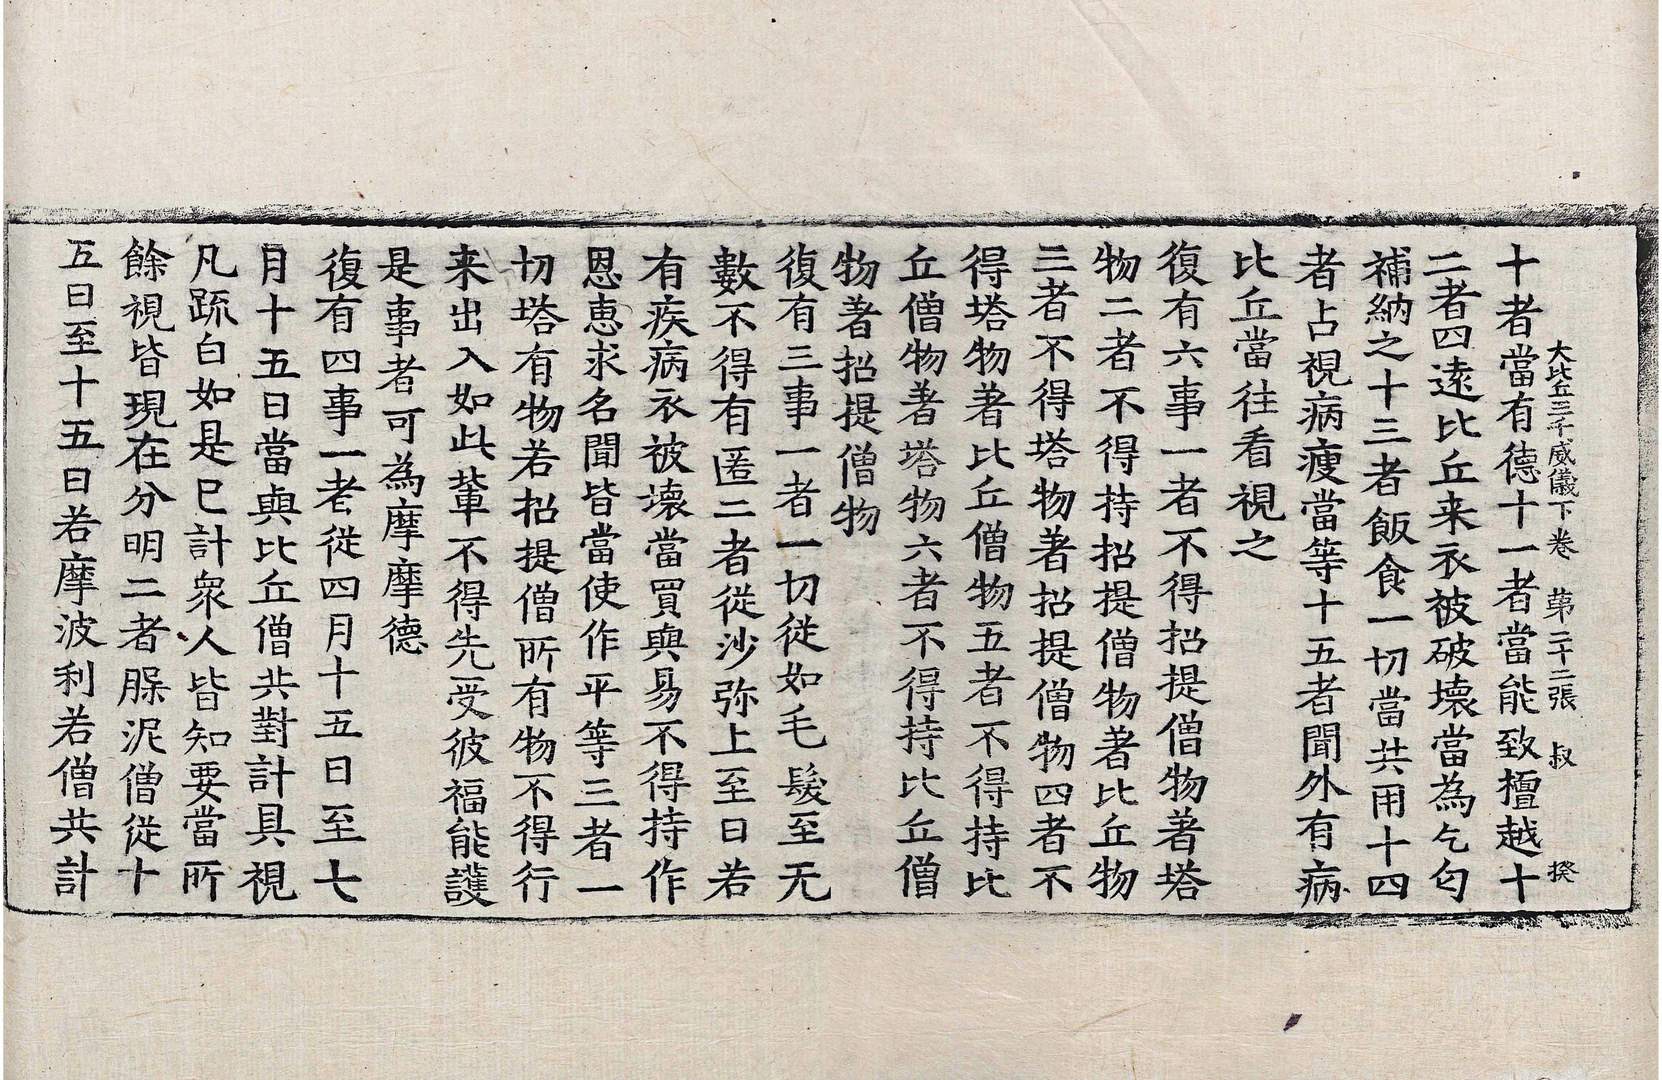 大比丘三千威儀下卷　第二十二張　叔　揆
十者當有德十一者當能致檀越十
二者四遠比丘来衣被破壞當為乞匄
補納之十三者飯食一切當共用十四
者占視病瘦當等十五者聞外有病
比丘當往看視之
復有六事一者不得招提僧物著塔
物二者不得持招提僧物著比丘物
三者不得塔物著招提僧物四者不
得塔物著比丘僧物五者不得持比
丘僧物著塔物六者不得持比丘僧
物著招提僧物
復有三事一者一切従如毛髮至无
數不得有匿二者從沙弥上至日若
有疾病衣被壞當買與易不得持作
恩恵求名聞皆當使作平等三者一
切塔有物若招提僧所有物不得行
来出入如此輩不得先受彼福能護
是事者可為摩摩德
復有四事一者從四月十五日至七
月十五日當與比丘僧共對計具視
凡䟽白如是已計衆人皆知要當所
餘視皆現在分明二者脲泥僧從十
五日至十五日若摩波利若僧共計